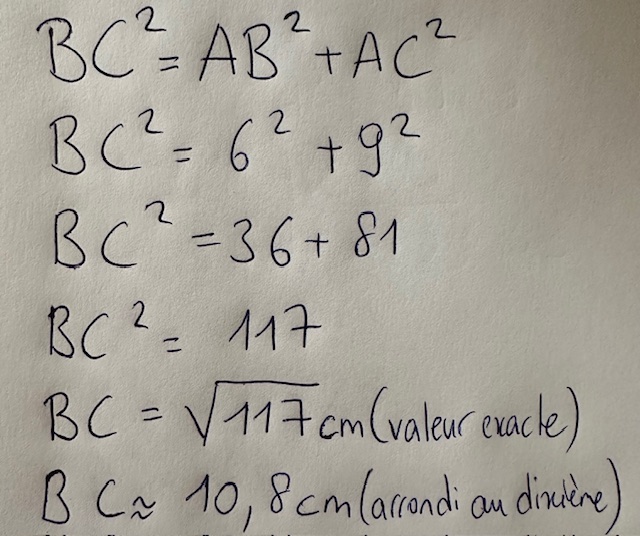 BC² = AB² + AC²
BC² = 6² + 9²
BC² = 36 + 81
BC² = 117
BC = √117 cm (valeur exacte)
BC ≈ 10,8 cm (arrondi au dixième)